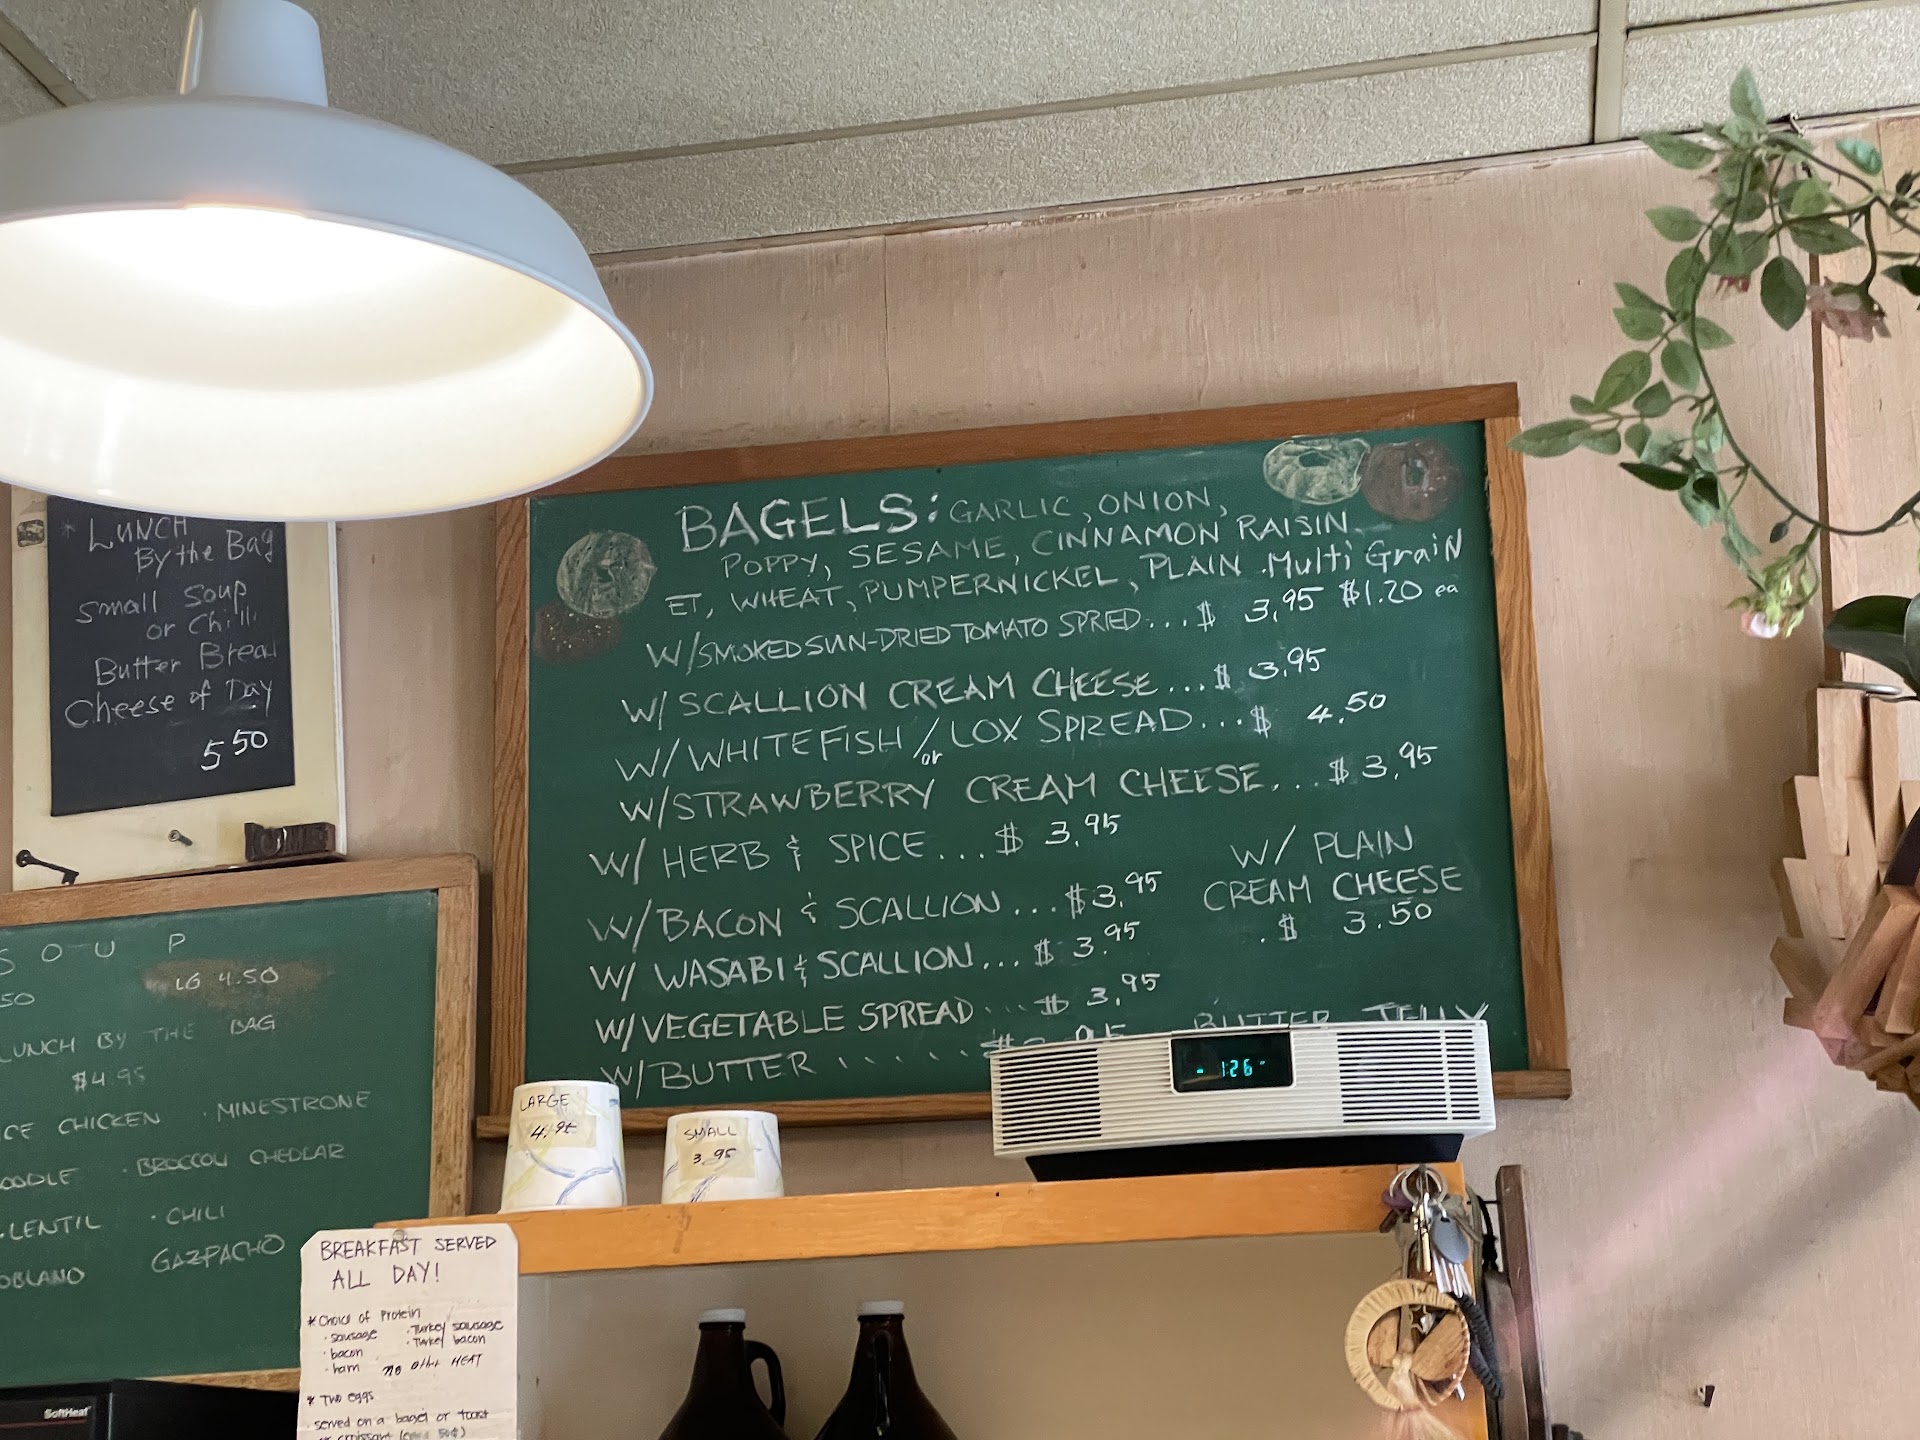 * LUNCH
By the Bag
Small Soup
or Chili
Butter Bread
Cheese of Day
5 50
BAGELS: GARLIC, ONION,
POPPY, SESAME, CINNAMON RAISIN
ET, WHEAT, PUMPERNICKEL, PLAIN .Multi GraiN
$1.20 ea
W/SMOKED SUN-DRIED TOMATO SPRIED...$ 3.95
W/SCALLION CREAM CHEESE...$ 3.95
W/WHITEFISH/or LOX SPREAD...$ 4.50
W/STRAWBERRY CREAM CHEESE...$3.95
W/ HERB & SPICE...$ 3.95
W/BACON & SCALLION...$3.95
W/ WASABI & SCALLION...$ 3.95
W/VEGETABLE SPREAD...$ 3.95
W/BUTTER
W/ PLAIN
CREAM CHEESE
.$ 3.50
BUTTER JELLY
1:26
SOUP
50 LG 4.50
LUNCH BY THE BAG
$4.95
CHICKEN · MINESTRONE
· BROCCOLI CHEDLAR
·LENTIL · CHILI
OBLANO GAZPACHO
LARGE
4.95
SMALL
3.95
BREAKFAST SERVED
ALL DAY!
* Choice of Protein
· sausage · Turkey sausage
· bacon · Turkey bacon
· ham no other MEAT
* Two eggs
· served on a bagel or toast
or croissant
SoftHeat